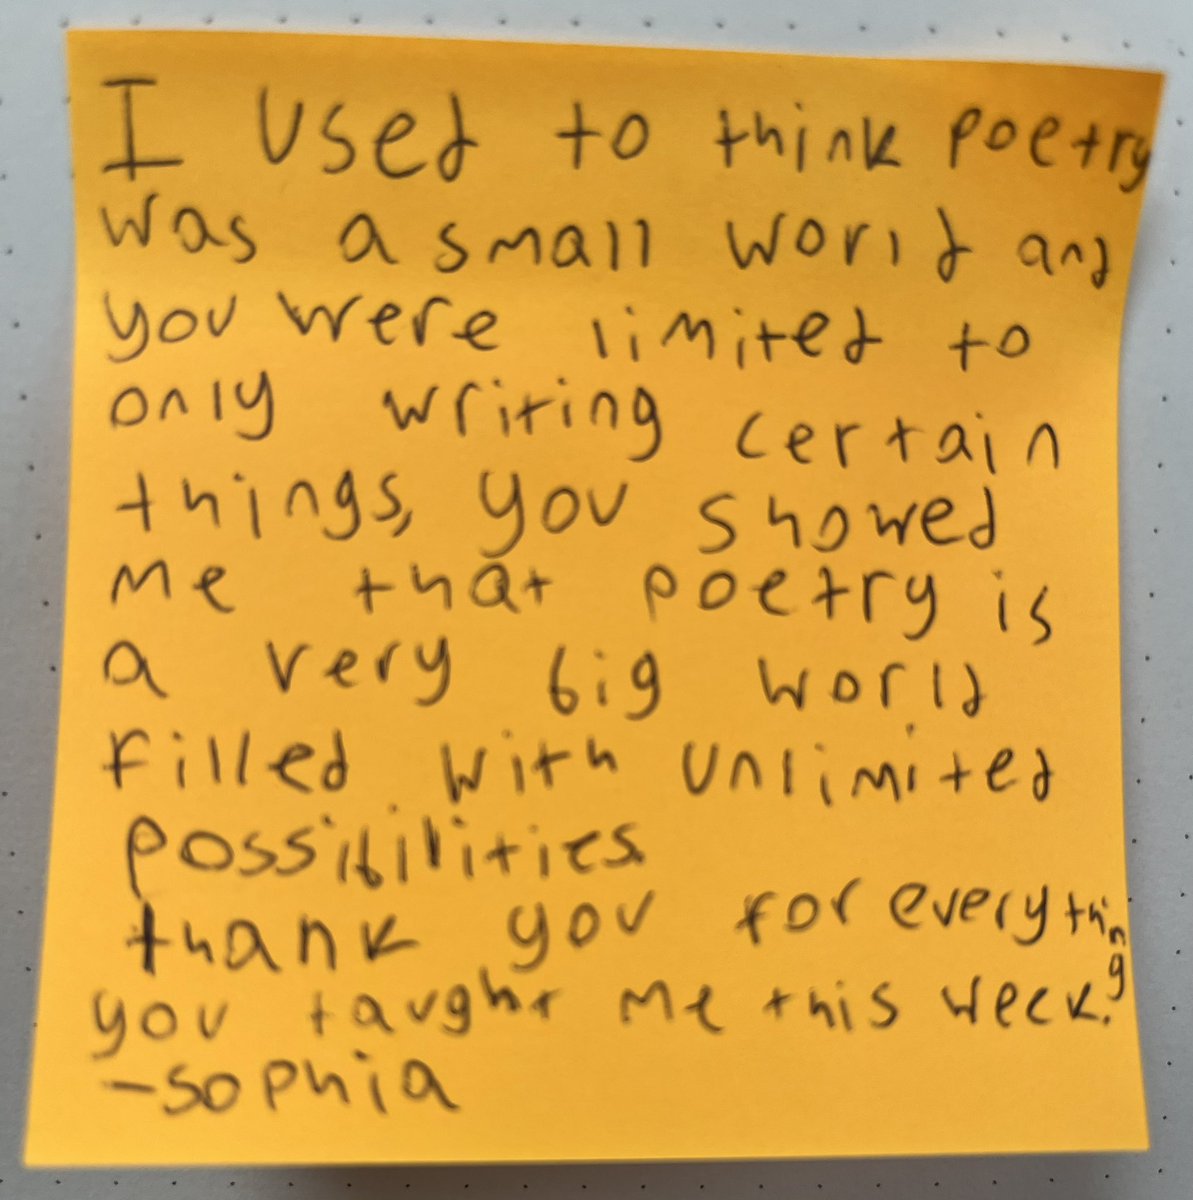 I used to think poetry
was a small world and
you were limited to
only writing certain
things, you showed
me that poetry is
a very big world
filled with unlimited
possibilities
thank you for everything
you taught me this week.
-sophia